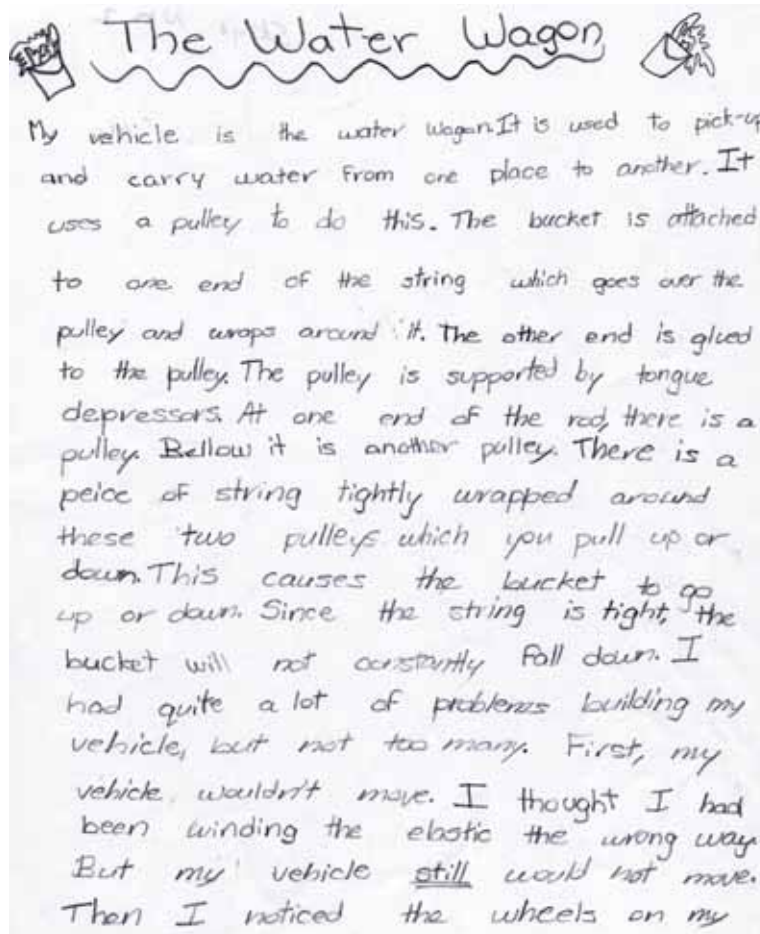 The Water Wagon
My vehicle is the water wagon. It is used to pick-up
and carry water from one place to another. It
uses a pulley to do this. The bucket is attached
to one end of the string which goes over the
pulley and wraps around it. The other end is glued
to the pulley. The pulley is supported by tongue
depressors. At one end of the rod, there is a
pulley. Bellow it is another pulley. There is a
peice of string tightly wrapped around
these two pulleys which you pull up or
down. This causes the bucket to go
up or down. Since the string is tight, the
bucket will not constantly fall down. I
had quite a lot of problems building my
vehicle, but not too many. First, my
vehicle wouldn't move. I thought I had
been winding the elastic the wrong way.
But my vehicle still would not move.
Then I noticed the wheels on my